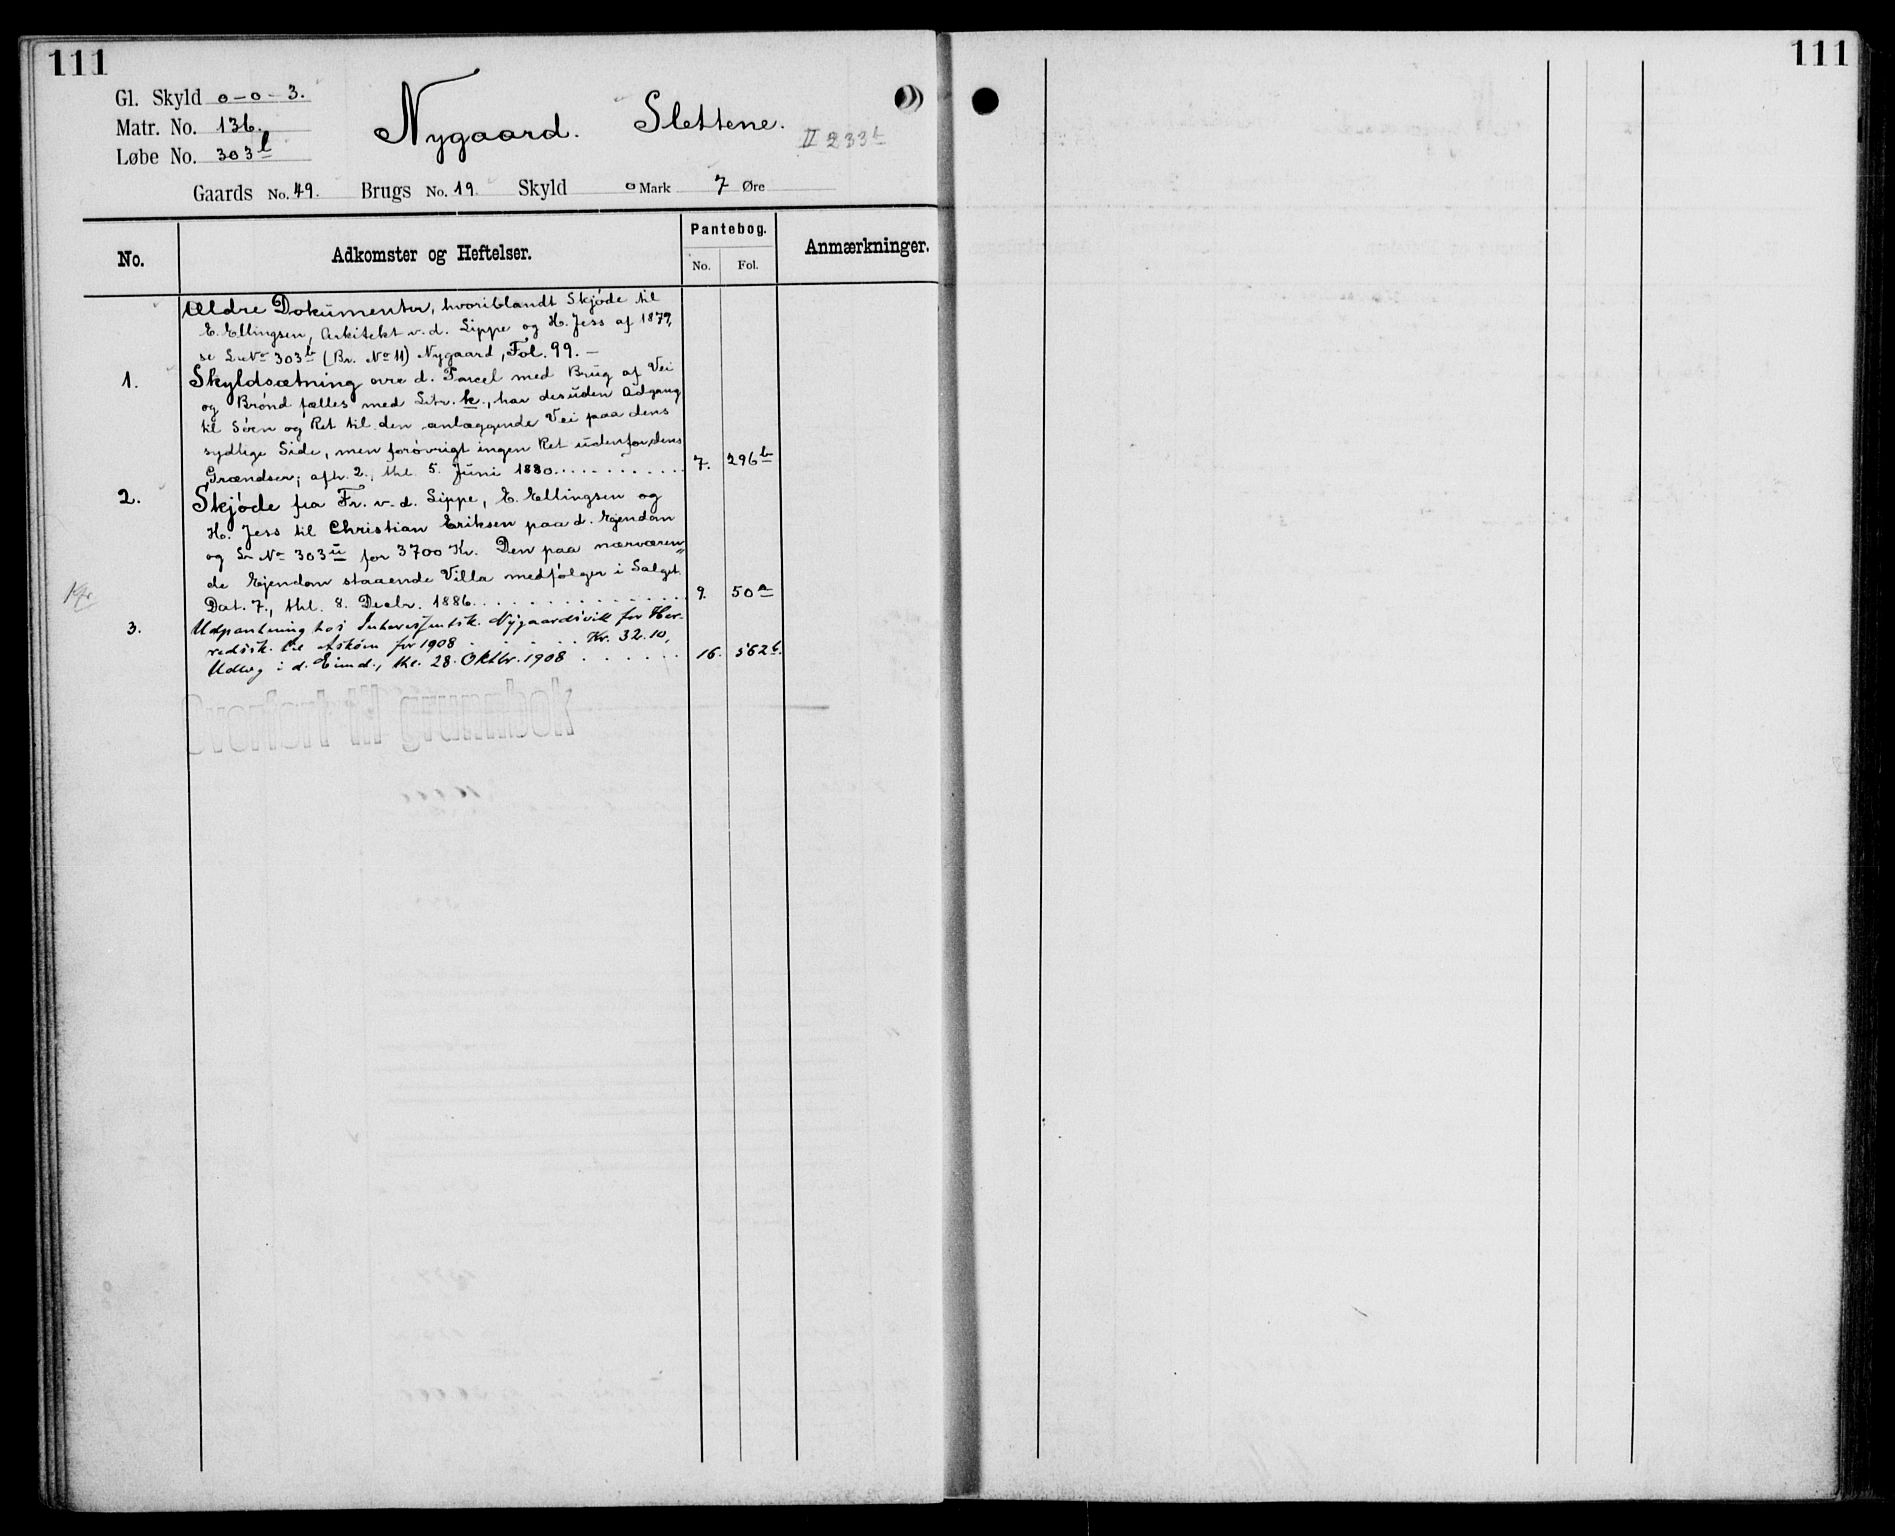 111
111
Gl. Skyld 0-0-3.
Matr. No. 136.
Løbe No. 303l
Nygaard. Slettene.
II 233b
Gaards No. 49. Brugs No. 19. Skyld 0 Mark 7 Øre
No.
Adkomster og Heftelser.
Pantebog.
No. Fol.
Anmærkninger.
Ældre Dokumenter, hvoriblandt Skjøde til
E. Ellingsen, Arkitekt v. d. Lippe og H. Jess af 1879,
se L No 303b (Br. No 11) Nygaard, Fol. 99. –
1. Skyldsætning over d. Parcel med Brug af Vei
og Brønd fælles med Litr. k., har desuden Adgang
til Søen og Ret til den anlæggende Vei paa dens
sydlige Side, men forøvrigt ingen Ret udenfor dens
Grændser; afh. 2., thl. 5. Juni 1880. 7. 296b
2. Skjøde fra Fr. v. d. Lippe, E. Ellingsen og
H. Jess til Christian Eriksen paa d. Eiendom
og L No 303u for 3700 Kr. Den paa nærværen„
de Eiendom staaende Villa medfølger i Salget.
Dat. 7., thl. 8. Decbr. 1886. 9. 50a
3. Udpantning hos Nygaardsvik for Her-
redssk. til Askøen for 1908 Kr. 32.10,
Udlæg i d. Eiend., thl. 28. Oktbr. 1908 16. 562b.
Overført til grunnbok